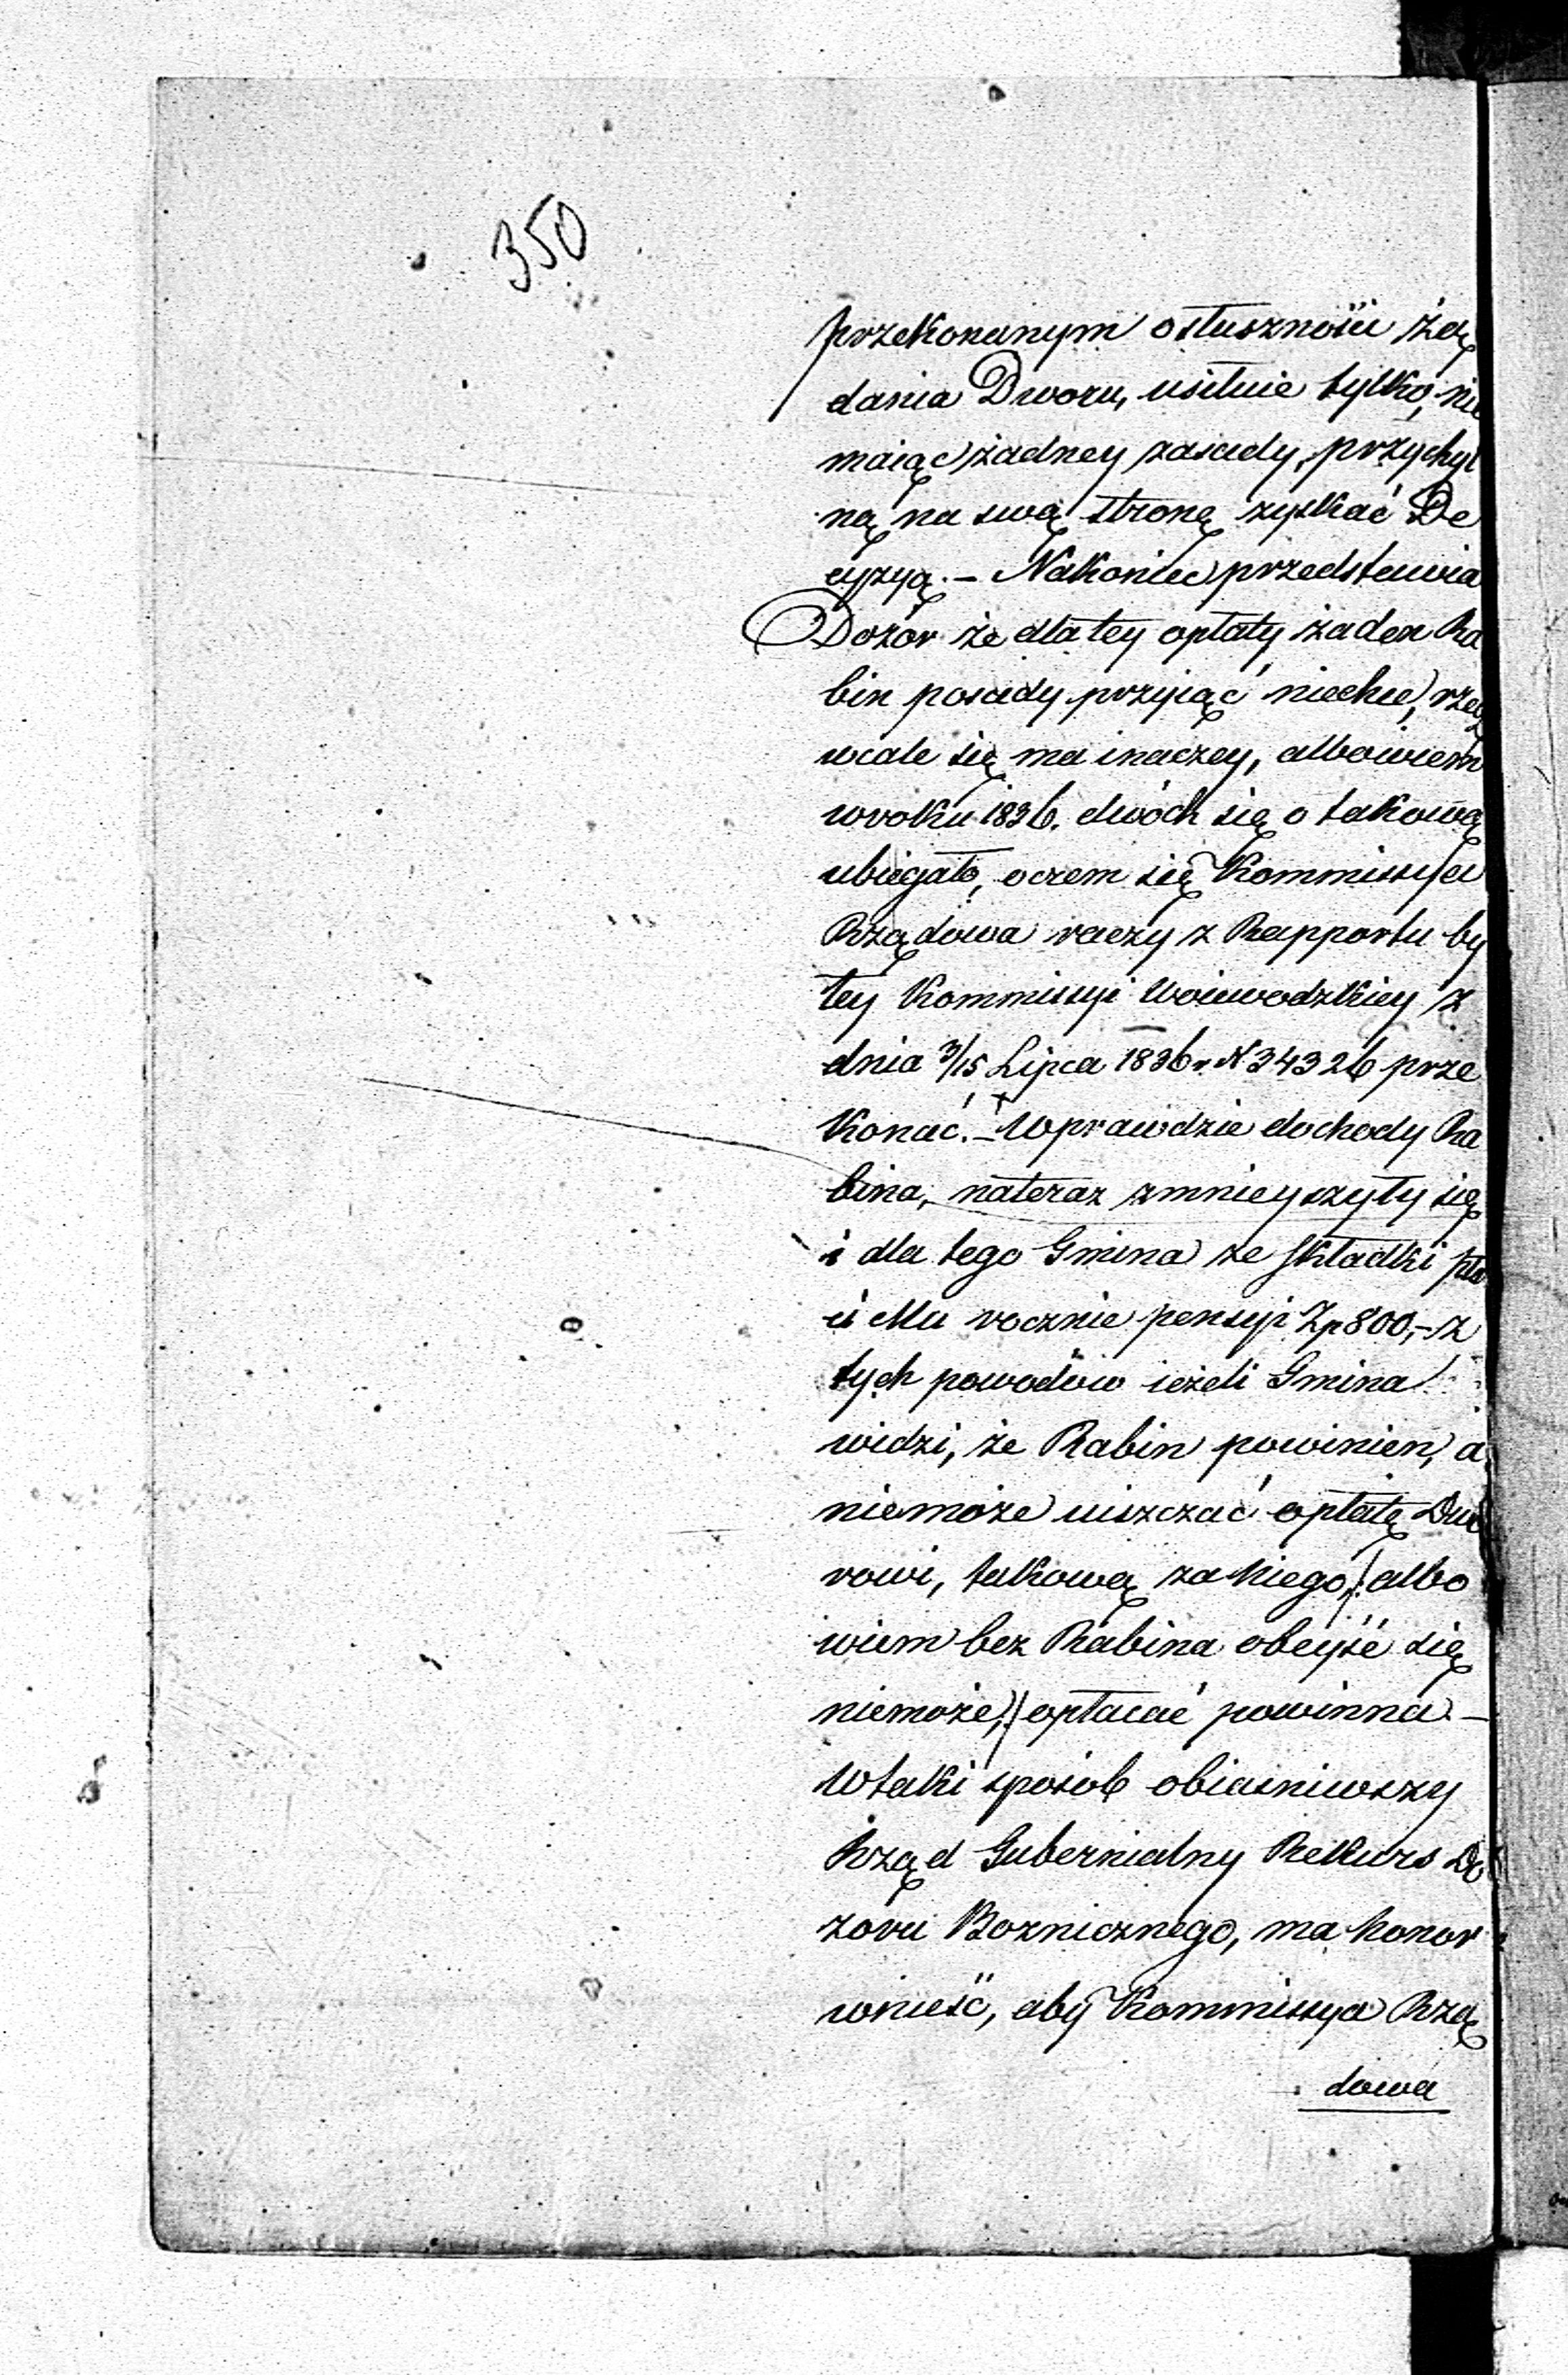 350
przekonanym o słuszności żą
dania Dworu, usiłuie tylko, nie
maiąc żadney zasady, przychyl
ną na swą stronę zyskać De
cyzyą. – Nakoniec przedstawia
Dozór że dla tey opłaty żaden Ra
bin posady przyiąć niechce, rzecz
wcale się ma inaczey, albowiem
w roku 1836. dwóch się o takową
ubiegało, o czem się Kommissya
Rządowa raczy z Rapportu by
łey Kommissyi Woiewodzkiey z
dnia 3/15 Lipca 1836 r. N 34326 prze
konać. – Wprawdzie dochody Ra
bina, nateraz zmnieyszyły się
i dla tego Gmina ze składki pła
ci Mu rocznie pensyi Zp 800,– z
tych powodów ieżeli Gmina
widzi, że Rabin powinien, a
niemoże uiszczać opłatę Dwo
rowi, takową za niego, /: albo
wiem bez Rabina obeyść się
niemoże, :/ opłacać powinna. –
W taki sposób obiasniwszy
Rząd Gubernialny Rekurs Do
zoru Boznicznego, ma honor
wnieść, aby Kommissya Rzą
dowa